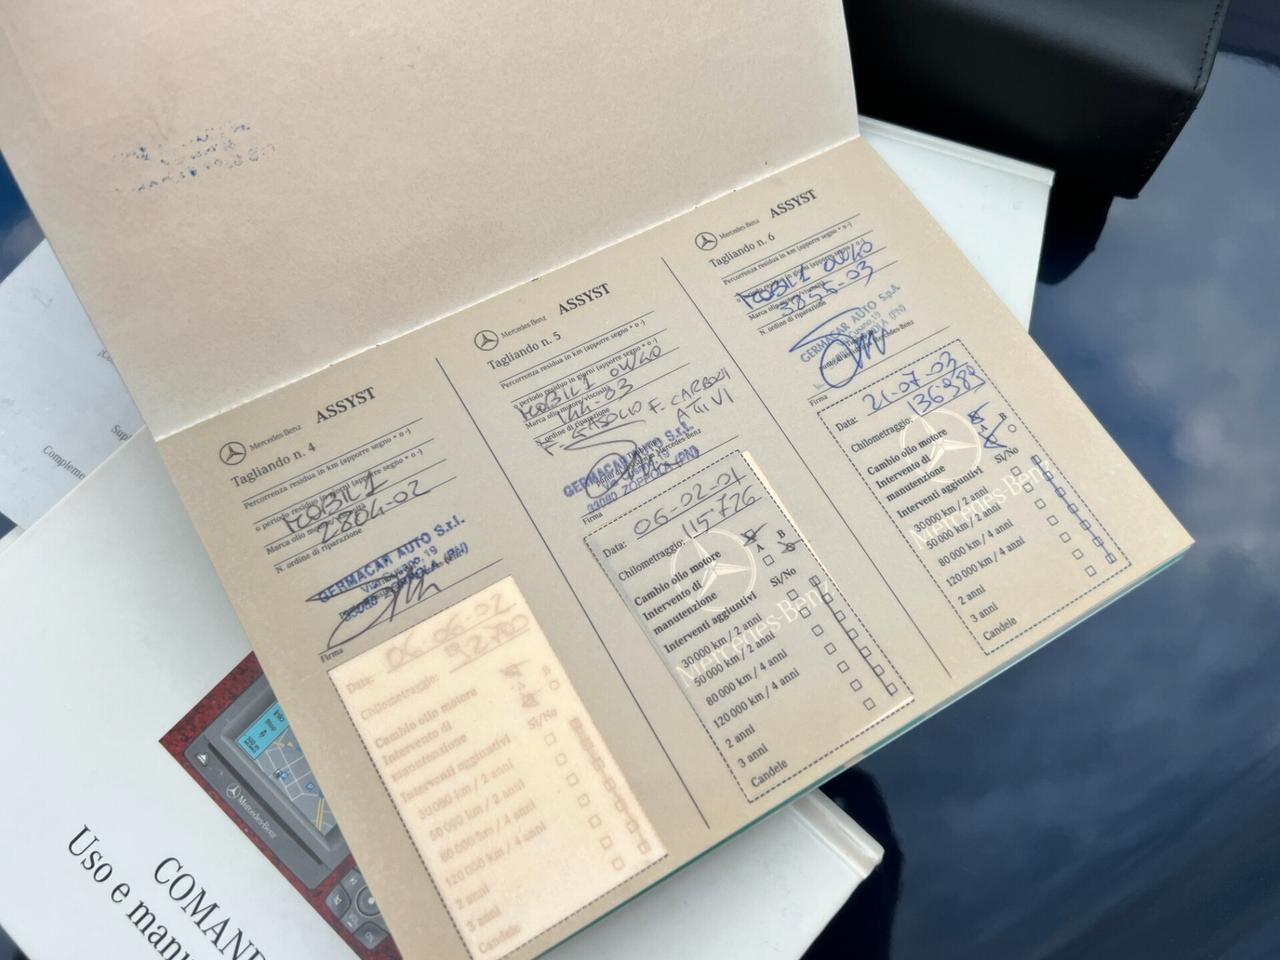 Mercedes-Benz ASSYST
Tagliando n. 4
Percorrenza residua in km (apporre segno + o -)
MOBIL 1
Marca olio
2804-02
N. ordine di riparazione
GERMACAR AUTO S.r.l.
33080 ZOPPOLA (PN)
Firma
Data: 06-06-02
Chilometraggio: 92700
Cambio olio motore
Intervento di A B
manutenzione
Interventi aggiuntivi Sì/No
30 000 km / 2 anni
50 000 km / 2 anni
80 000 km / 4 anni
120 000 km / 4 anni
2 anni
3 anni
Candele
Mercedes-Benz ASSYST
Tagliando n. 5
Percorrenza residua in km (apporre segno + o -)
o periodo residuo in giorni (apporre segno + o -)
MOBIL 1 0W40
Marca olio motore/viscosità
N. ordine di riparazione
F. GASOLIO F. CARBONI
ATTIVI
GERMACAR AUTO S.r.l.
33080 ZOPPOLA (PN)
Firma
Data: 06-02-01
Chilometraggio: 115726
Cambio olio motore
Intervento di A B
manutenzione
Interventi aggiuntivi Sì/No
30 000 km / 2 anni
50 000 km / 2 anni
80 000 km / 4 anni
120 000 km / 4 anni
2 anni
3 anni
Candele
Mercedes-Benz
Mercedes-Benz ASSYST
Tagliando n. 6
Percorrenza residua in km (apporre segno + o -)
MOBIL 1 0W40
Marca olio motore/viscosità
3855-03
N. ordine di riparazione
GERMACAR AUTO S.p.A.
Firma
Data: 21-07-03
Chilometraggio: 136989
Cambio olio motore
Intervento di A B
manutenzione
Interventi aggiuntivi Sì/No
30 000 km / 2 anni
50 000 km / 2 anni
80 000 km / 4 anni
120 000 km / 4 anni
2 anni
3 anni
Candele
Mercedes-Benz
Mercedes-Benz
COMAND
Uso e manu
Sup
Compleme